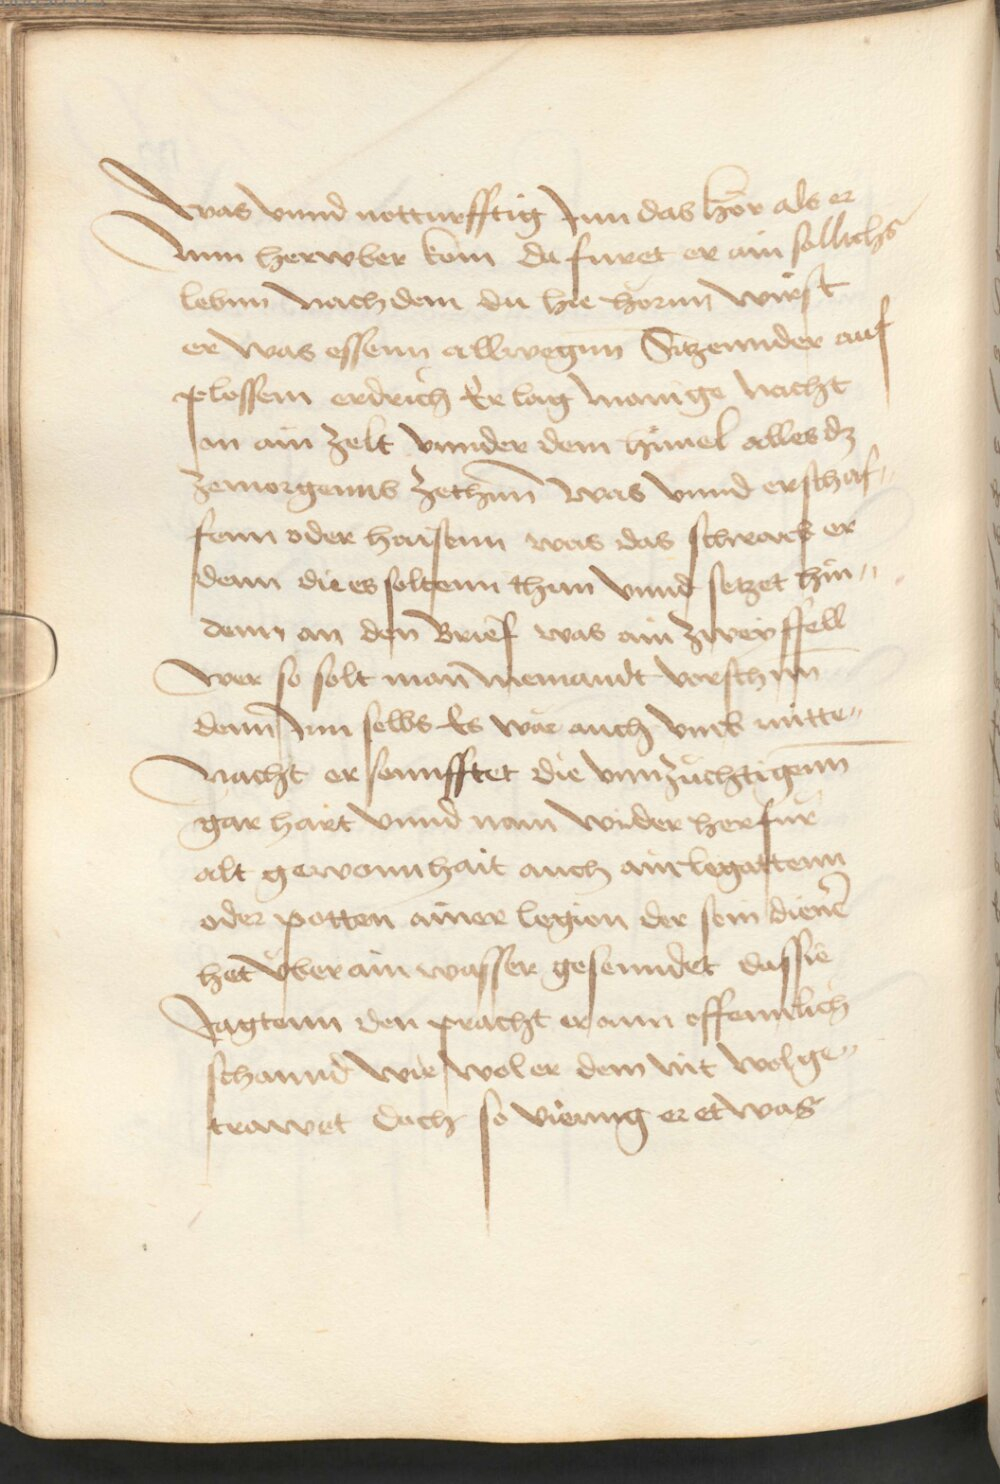 was vnnd notturfftig Inn das hör als er
Nun herwber kom da furet er ain sollichs
lebnn nach dem du hie hörnn wirst
er was essenn allwegnn Sitzennder auf
plossem erdrich Er lag manige nacht
on ain zelt vnnder dem himel alles dz
zemorgenns zethun was vnnd erschaf„
fenn oder haissenn was das schraib er
denn die es soltenn thun vnnd setzet hin„
denn an den Brief was ain zweyffell
wer so solt man niemandt vorschnn
denn Inn selbs Es wär auch vmb mitte„
nacht er sennfftet die vnnzüchtigenn
gar hart vnnd nam wider herfür
alt gewonnhait auch ain legattenn
oder potten ainer legion der sein diener
het vber ain wasser gesenndet das sie
Jagtenn den pracht er ann offennlich
schannd wie wol er dem nit wolge„
trawet doch so vieng er etwas